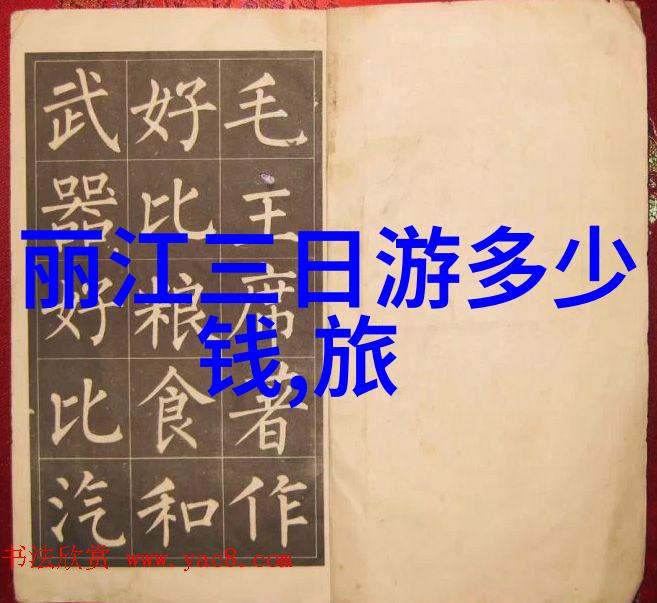 毛主席著作
好比粮食和
武器好比汽
丽江三日游多少
钱,旅
书法欣赏 www.yac8.com